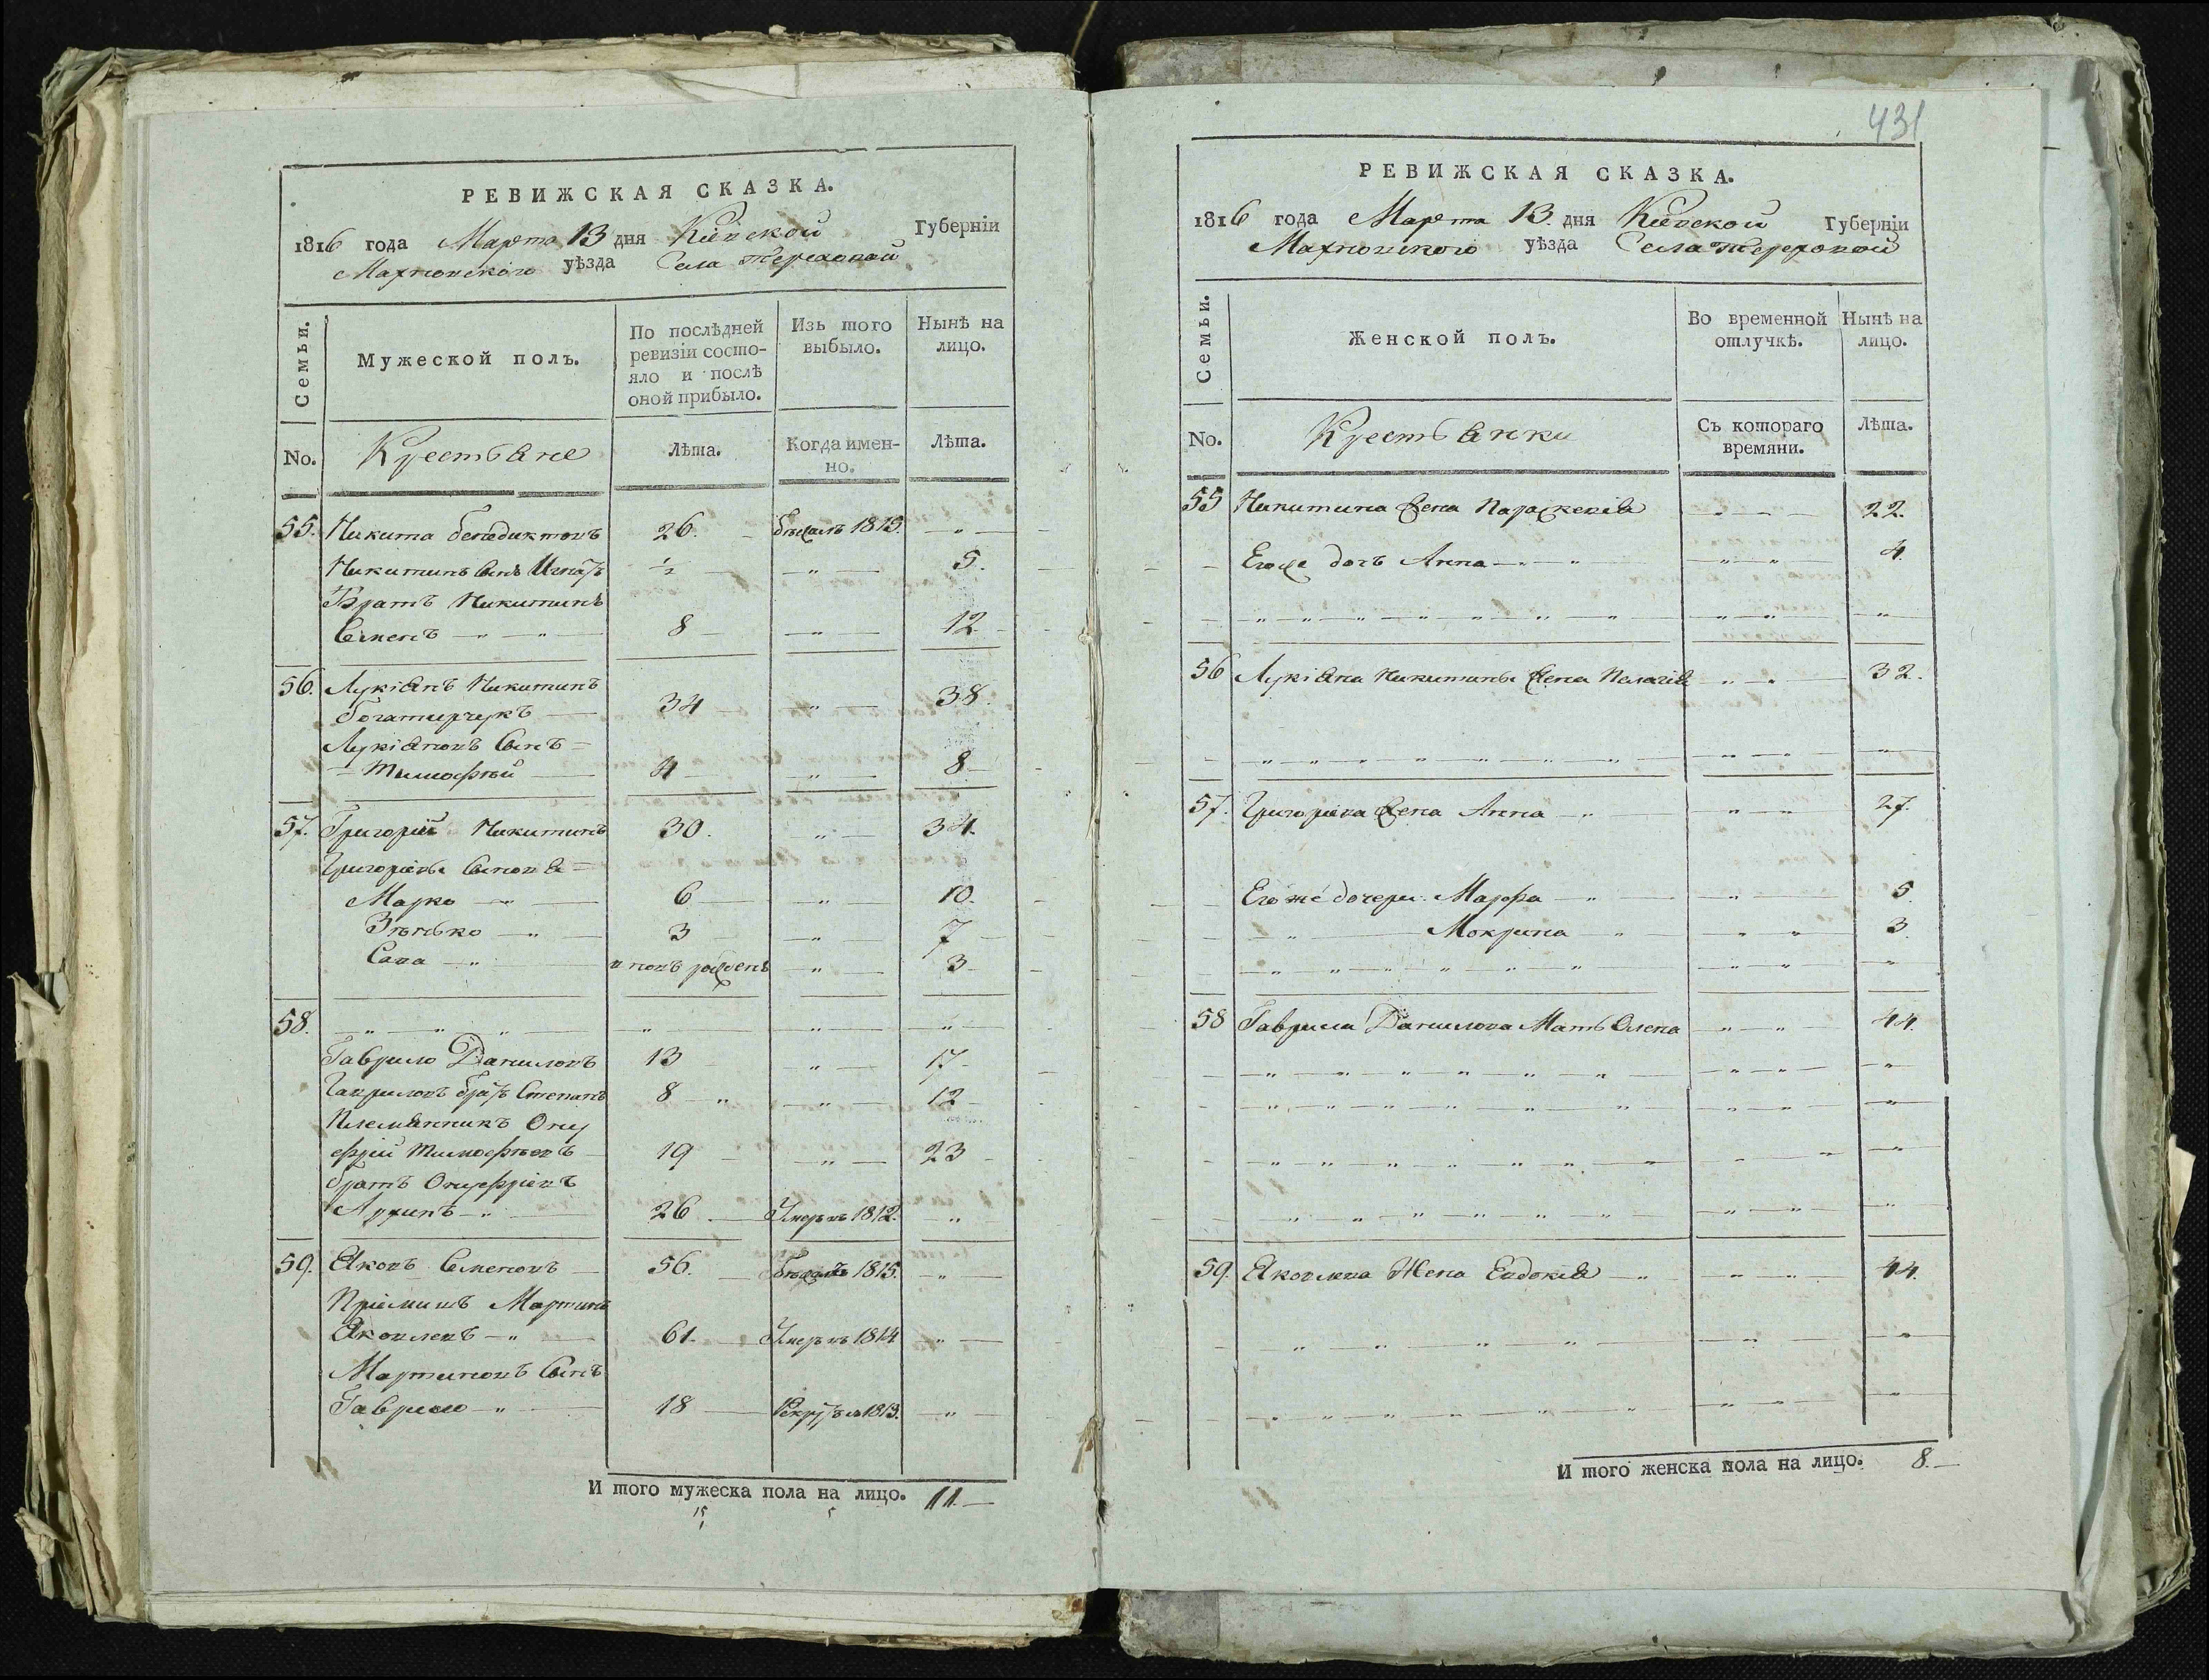 РЕВИЖСКАЯ СКАЗКА.
1816 года Марта 13 дня Кіевской Губерніи
Махновского уѣзда Села Тереховой
Семьи.
Мужеской полъ.
По послѣдней
ревизіи состо-
яло и послѣ
оной прибыло.
Изъ того
выбыло.
Нынѣ на
лицо.
No. Крестьяне Лѣта. Когда имен-
но. Лѣта.
55. Никита Бенедиктовъ 26. бѣжалъ 1815. - " -
Никитинъ сынъ Игнатъ ½ - " - 5.
Братъ Никитинъ
Семенъ - " - " - 8 - " - 12
56. Лукіянъ Никитинъ
Богатирчукъ 34 - " - 38.
Лукіяновъ Сынъ
Тимофѣй 4 - " - 8
57. Григорій Никитинъ 30. - " - 34.
Григоріевы Сыновя
Марко - " - 6 - " - 10.
Зѣнько - " - 3 - " - 7
Сава - " - и новъ рожденъ - " - 3
58. - " - " - " - " - " - "
Гаврило Даниловъ 13 - " - 17
Гавриловъ братъ Степанъ 8 - " - " - 12
Племянникъ Ону
фрій Тимофѣевъ 19 - " - 23
братъ Онуфріевъ
Архипъ - " 26 Умеръ въ 1812. - "
59. Яковъ Семеновъ 56. бѣжалъ 1815. - " -
Пріймишъ Мартинъ
Яковлевъ - " 61. Умеръ въ 1814 - " -
Мартиновъ Сынъ
Гаврило - " - 18 Рекрутъ въ 1813. - " -
И того мужеска пола на лицо. 11.
15 5
431
РЕВИЖСКАЯ СКАЗКА.
1816 года Марта 13. дня Кіевской Губерніи
Махновского уѣзда Села Тереховой
Семьи.
Женской полъ.
Во временной
отлучкѣ.
Нынѣ на
лицо.
No. Крестьянки Съ котораго
времяни. Лѣта.
55 Никитина жена Параскевія - " - 22.
Егоже дочъ Анна - " - " - " - " - 4.
- " - " - " - " - " - " - " - " - " - "
56 Лукіяна Никитина жена Пелагія - " - " - 32.
- " - " - " - " - " - " - " - " - " - "
57. Григоріева жена Анна - " - " - " 27.
Его же дочери Марфа - " - " - 5.
- " - Мокрина - " - " - " 3.
- " - " - " - " - " - " - " - " - "
58 Гаврила Данилова Мать Олена - " - " - 44.
- " - " - " - " - " - " - " - " - "
- " - " - " - " - " - " - " - " - "
- " - " - " - " - " - " - " - " - "
- " - " - " - " - " - " - " - " - "
59. Яковлева Жена Евдокія - " - " - " - 44.
- " - " - " - " - " - "
- " - " - " - " - " - " - " - " - "
И того женска пола на лицо. 8.